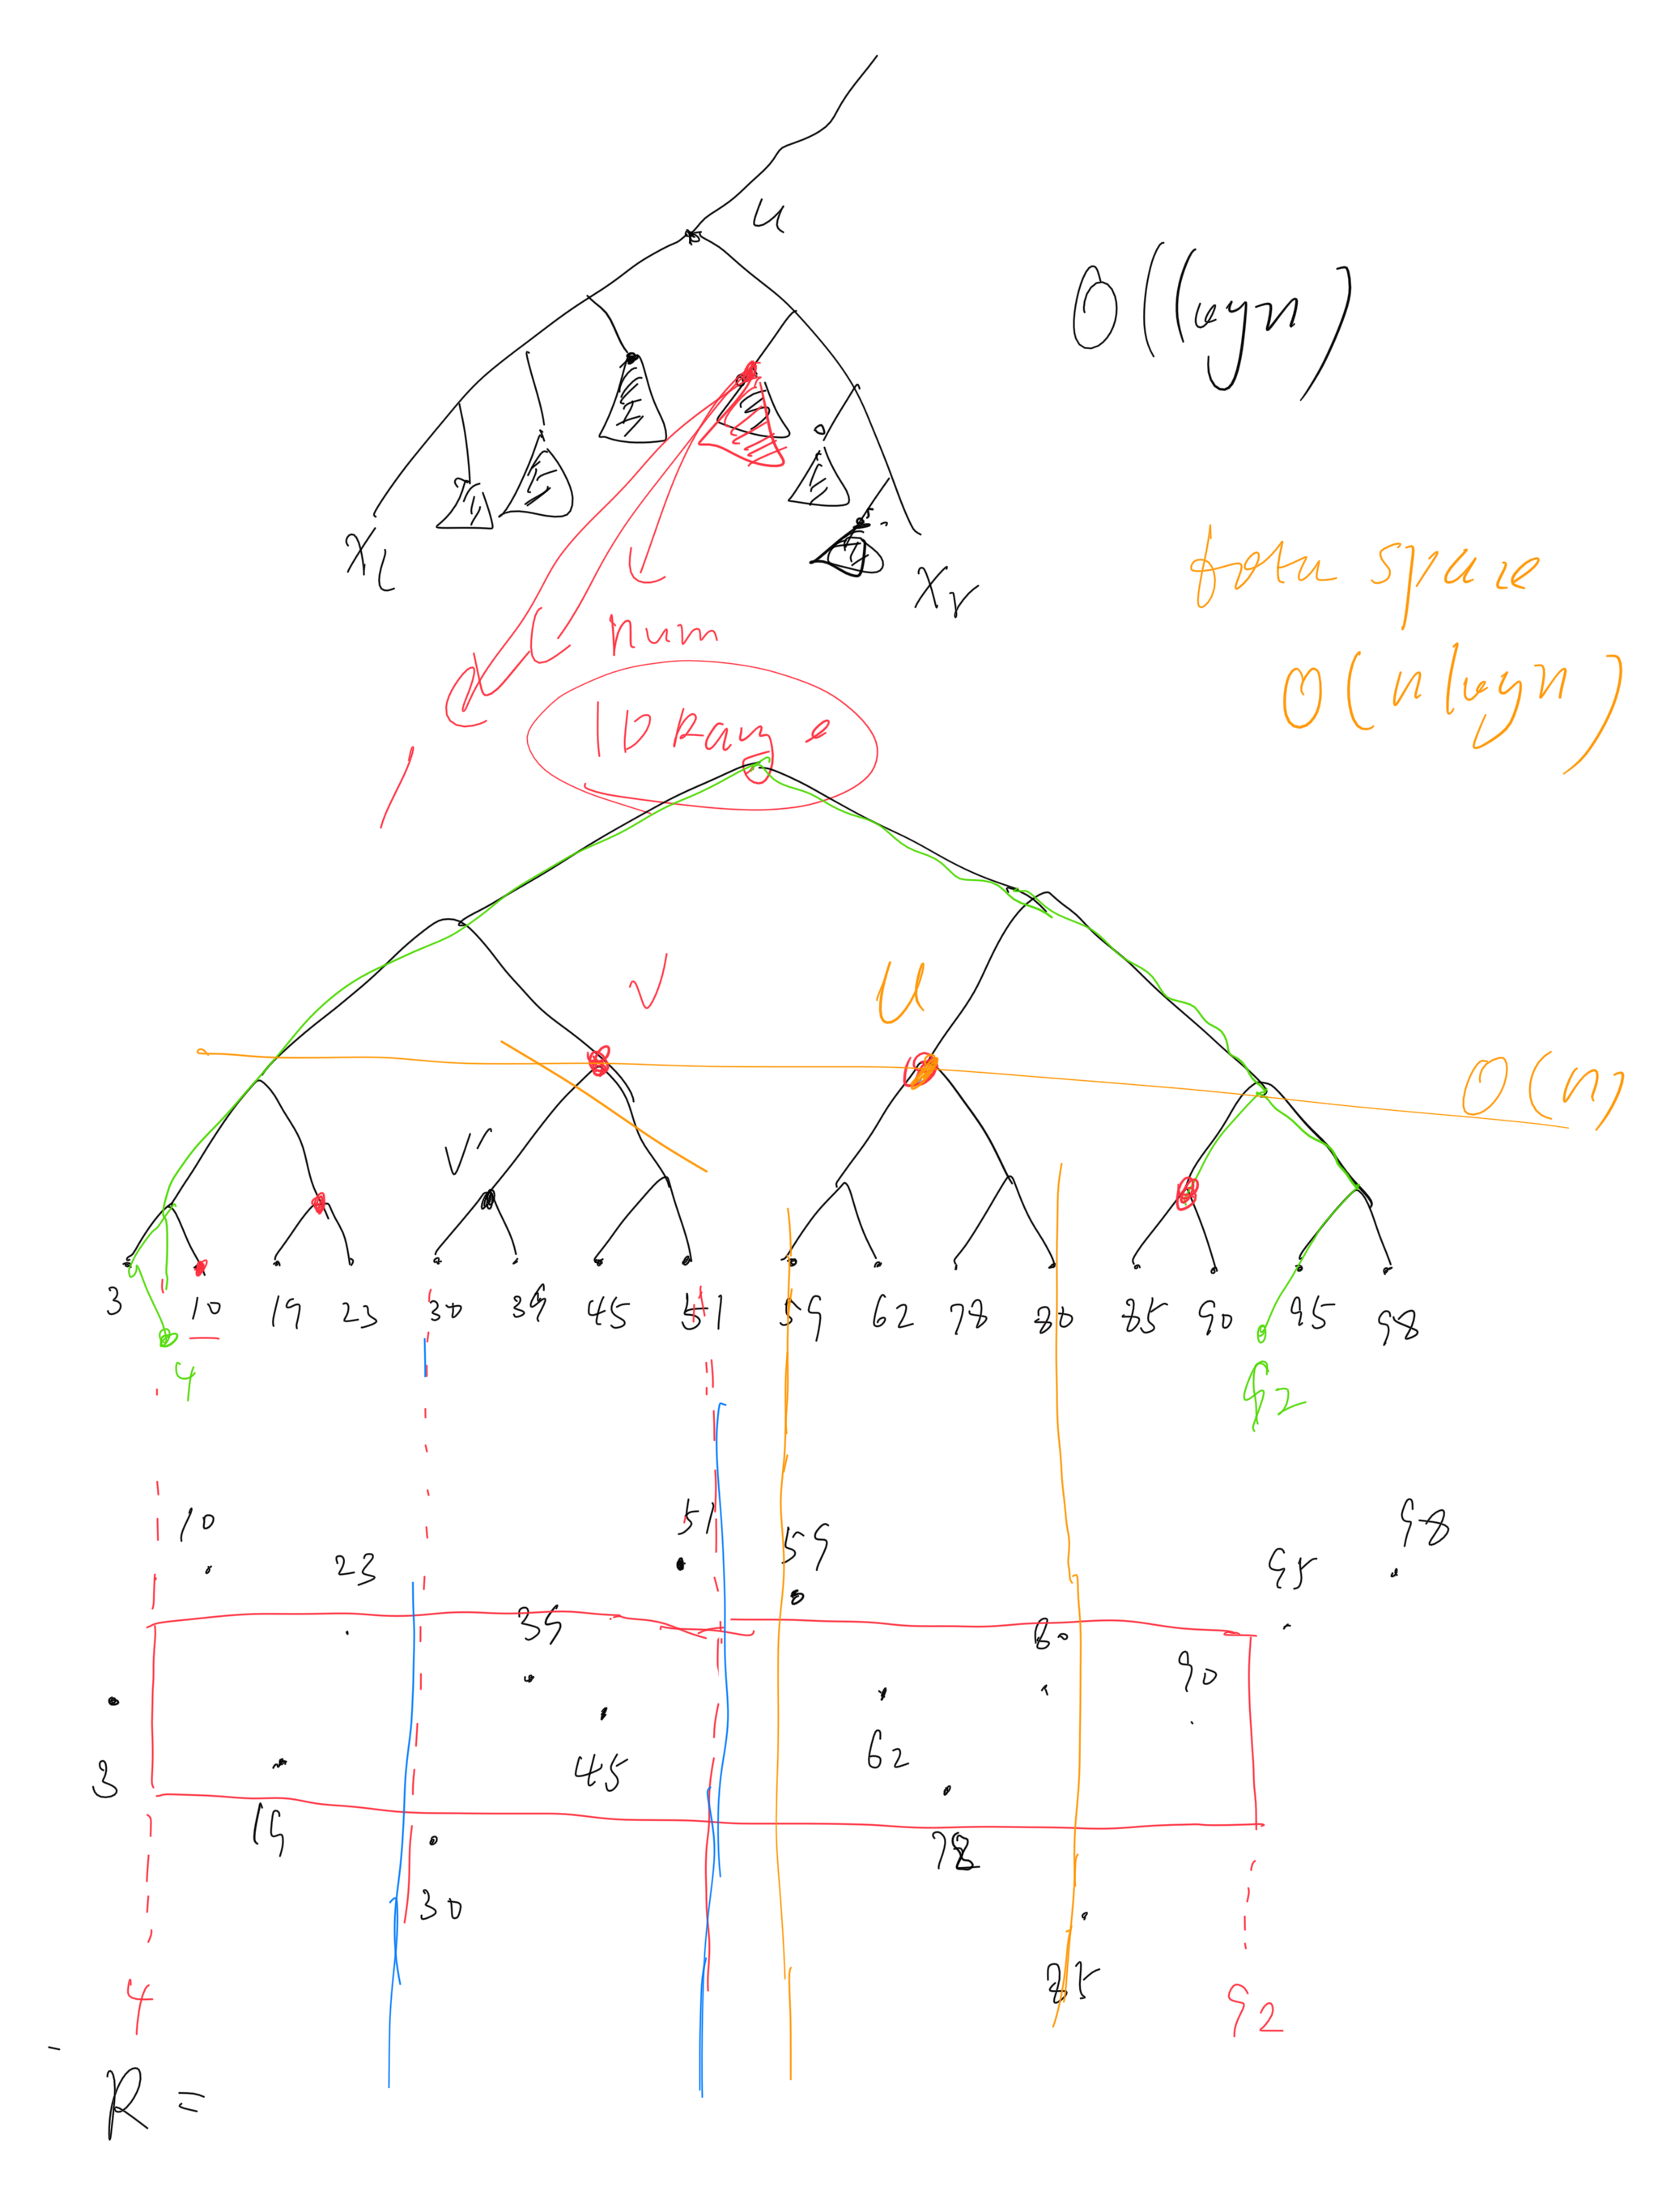 u
O((logn)
total space
O(nlogn)
Xl
Xr
num
1D Range
V
u
O(n)
V'
3 10 19 23 30 39 45 51 59 62 78 80 85 90 95 98
4
92
10
51
59
98
23
95
39
80
90
3
45
62
19
78
30
85
4
92
R =